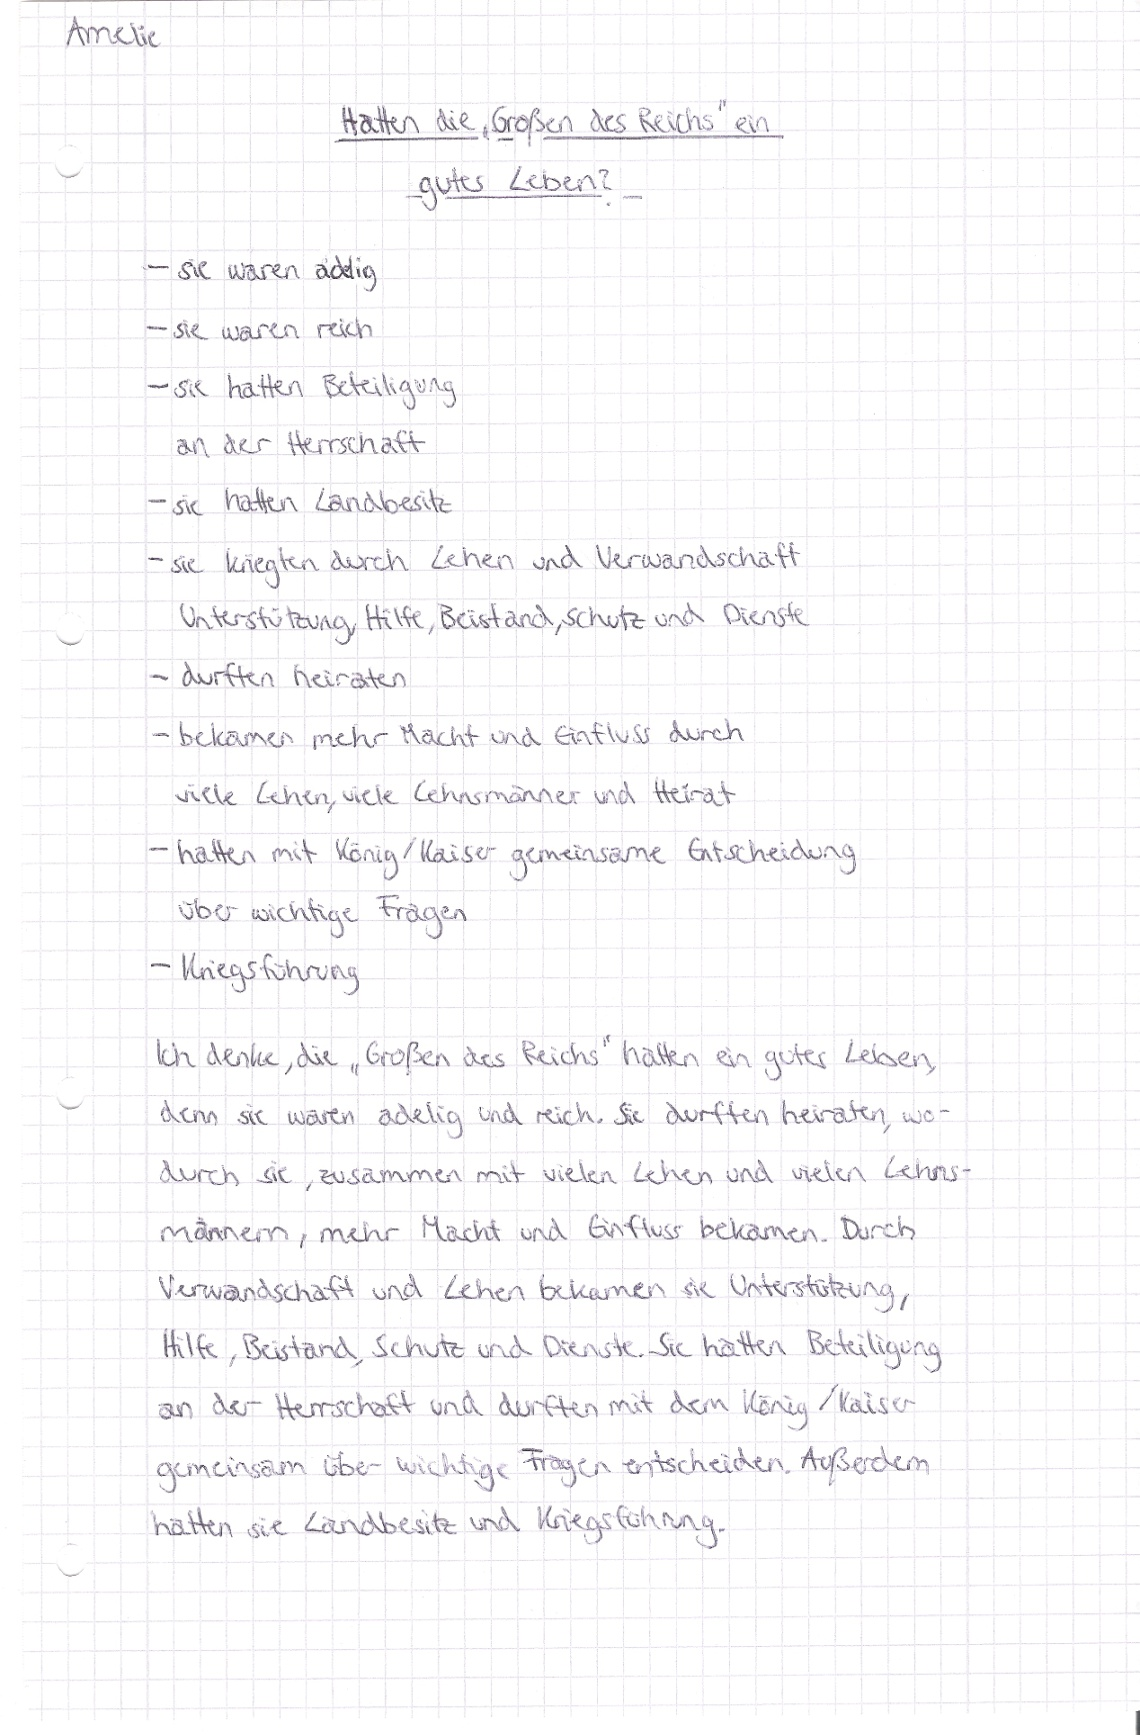 Amelie
Hatten die „Großen des Reichs" ein
gutes Leben?
- sie waren adelig
- sie waren reich
- sie hatten Beteiligung
an der Herrschaft
- sie hatten Landbesitz
- sie kriegten durch Lehen und Verwandschaft
Unterstützung, Hilfe, Beistand, Schutz und Dienste
- durften heiraten
- bekamen mehr Macht und Einfluss durch
viele Lehen, viele Lehnsmänner und Heirat
- hatten mit König/Kaiser gemeinsame Entscheidung
über wichtige Fragen
- Kriegsführung
Ich denke, die „Großen des Reichs" hatten ein gutes Leben,
denn sie waren adelig und reich. Sie durften heiraten, wo-
durch sie, zusammen mit vielen Lehen und vielen Lehns-
männern, mehr Macht und Einfluss bekamen. Durch
Verwandschaft und Lehen bekamen sie Unterstützung,
Hilfe, Beistand, Schutz und Dienste. Sie hatten Beteiligung
an der Herrschaft und durften mit dem König/Kaiser
gemeinsam über wichtige Fragen entscheiden. Außerdem
hatten sie Landbesitz und Kriegsführung.